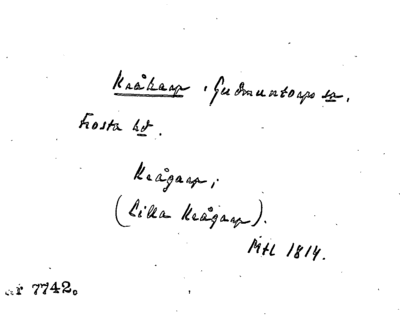 Kråkarp, Gudmuntorps sn,
Frosta hd.
Krågarp;
(Lilla Krågarp).
MtL 1814.
nr 7742.